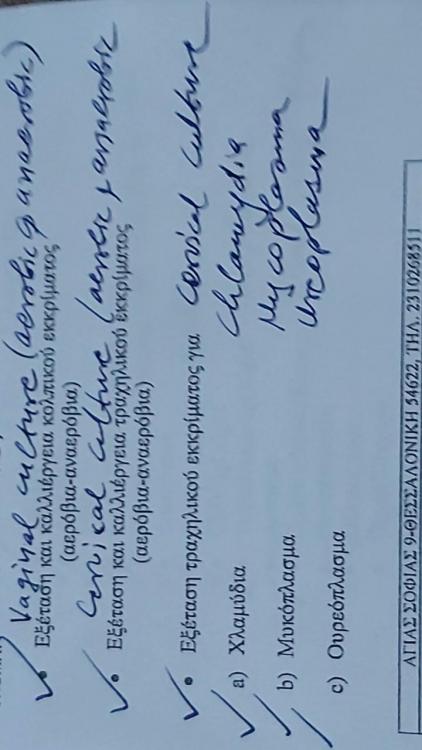 Vaginal culture (aerobic & anaerobic)
• Εξέταση και καλλιέργεια κολπικού εκκρίματος
(αερόβια-αναερόβια)
Cervical culture (aerobic & anaerobic
• Εξέταση και καλλιέργεια τραχηλικού εκκρίματος
(αερόβια-αναερόβια)
• Εξέταση τραχηλικού εκκρίματος για cervical culture
a) Χλαμύδια chlamydia
b) Μυκόπλασμα Mycoplasma
c) Ουρεόπλασμα Ureoplasma
ΑΓΙΑΣ ΣΟΦΙΑΣ 9-ΘΕΣΣΑΛΟΝΙΚΗ 54622, ΤΗΛ. 2310268511